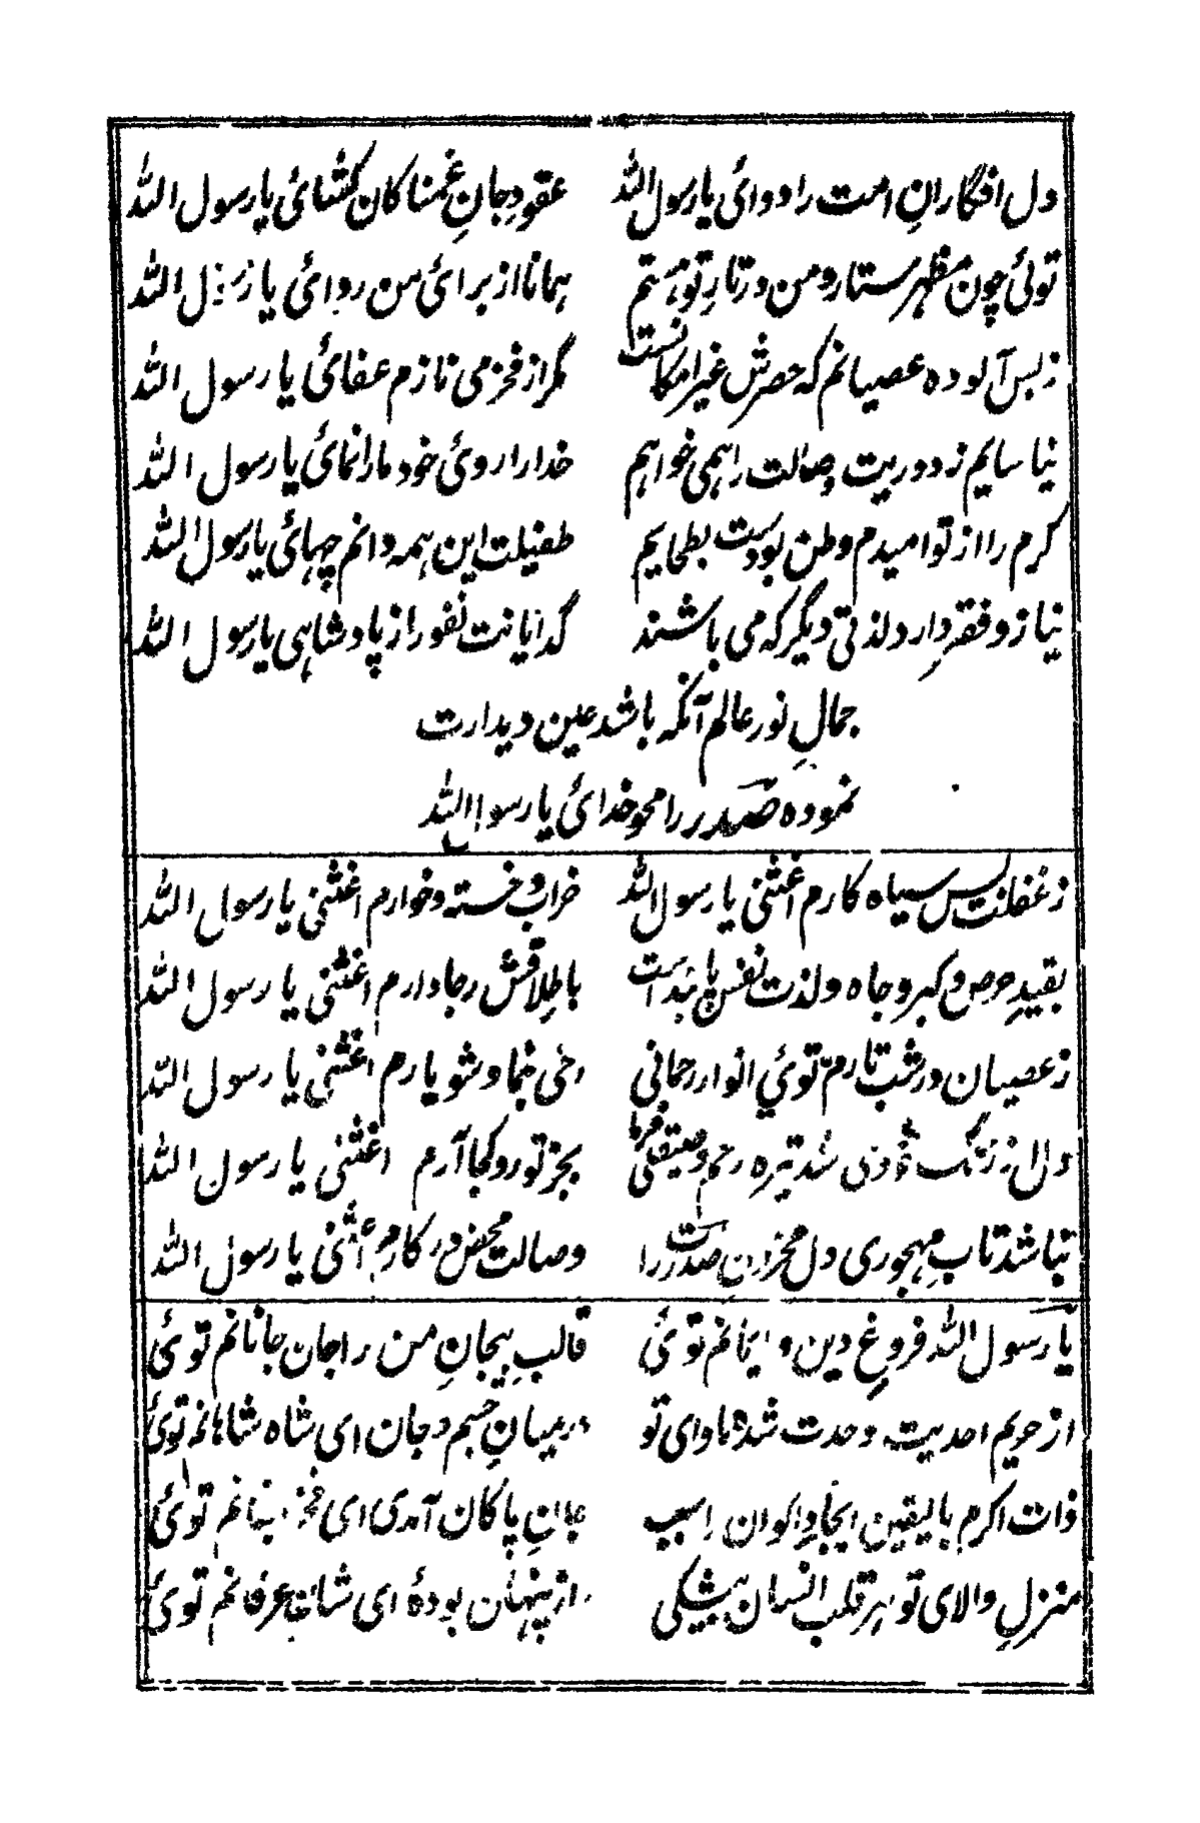 دل افگارانِ امت را دوائی یا رسول الله عقودِ جانِ غمناکان کشائی یا رسول الله
توئی چون مظهر ستار و من در تارِ تو هستم همانا از برائی من روائی یا رسول الله
زبس آلوده عصیانم که حصرش غیر امکانست مگر از فخر می نازم عفائی یا رسول الله
نیاسایم ز دوریت وصالت را همی خواهم خدارا روئ خود مارا نمائی یا رسول الله
کرم را از تو امیدم وطن بودست بطحایم طفیلت این همه دانم چهائی یا رسول الله
نیاز و فقر دارد لذتی دیگر که می باشند گدایانت نفور از پادشاهی یا رسول الله
جمالِ نور عالم آنکه باشد عین دیدارت
نموده صَدر را محو خدائی یا رسول الله
ز غفلت بس سیاه کارم اغثنی یا رسول الله خراب و خسته و خوارم اغثنی یا رسول الله
بقیدِ حرص و کبر و جاه و لذت نفس پابندست باطلاقش رجا دارم اغثنی یا رسول الله
ز عصیان در شب تارم توئی انوار رحمانی رخی بنما و شو یارم اغثنی یا رسول الله
دل از زنگ خودی شد تیره رحم و صیقلی فرما بجز تو رو کجا آرم اغثنی یا رسول الله
نباشد تابِ مهجوری دل محزون صدر را وصالت محض در کارم اغثنی یا رسول الله
یا رسول الله فروغِ دین و ایمانم توئی قالبِ بیجانِ من را جان جانانم توئی
از حریم احدیت وحدت شده ماوای تو درمیانِ جسم و جان ای شاه شاهانم توئی
ذات اکرم بالیقین ایجادِ اکوان را سبب جانِ پاکان آمدی ای فخر توئی
منزلِ والای تو هر قلب انسان بیشکی از پنهان بودهٔ ای شانِ عرفانم توئی